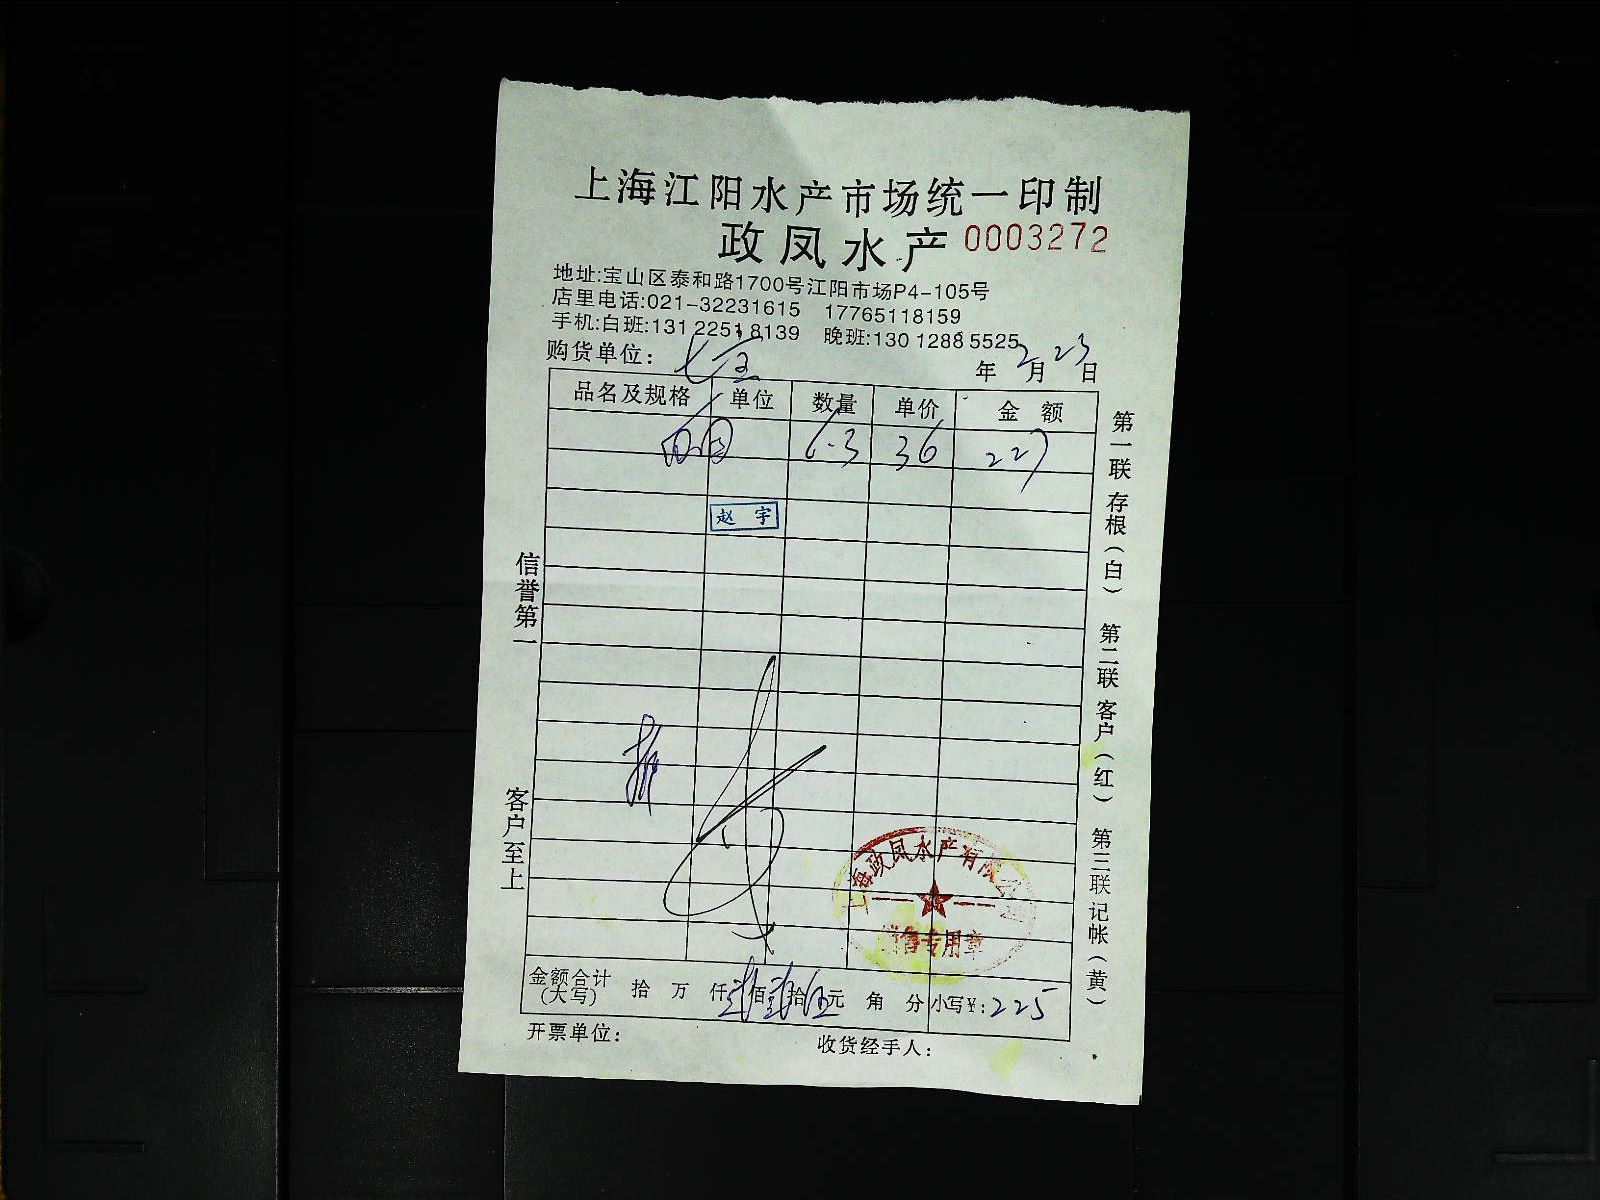 上海江阳水产市场统一印制
政凤水产 0003272
地址:宝山区泰和路1700号江阳市场P4-105号
店里电话:021-32231615 17765118159
手机:白班:131 2251 8139 晚班:130 1288 5525
购货单位: 七宝 年 2 月 23 日
品名及规格 单位 数量 单价 金额
6.3 36 227
赵宇
信誉第一
客户至上
第一联 存根(白) 第二联 客户(红) 第三联 记帐(黄)
上海政凤水产有限公司
销售专用章
金额合计(大写) 拾 万 仟 贰 佰 贰 拾 伍 元 角 分 小写¥: 225
开票单位: 收货经手人: